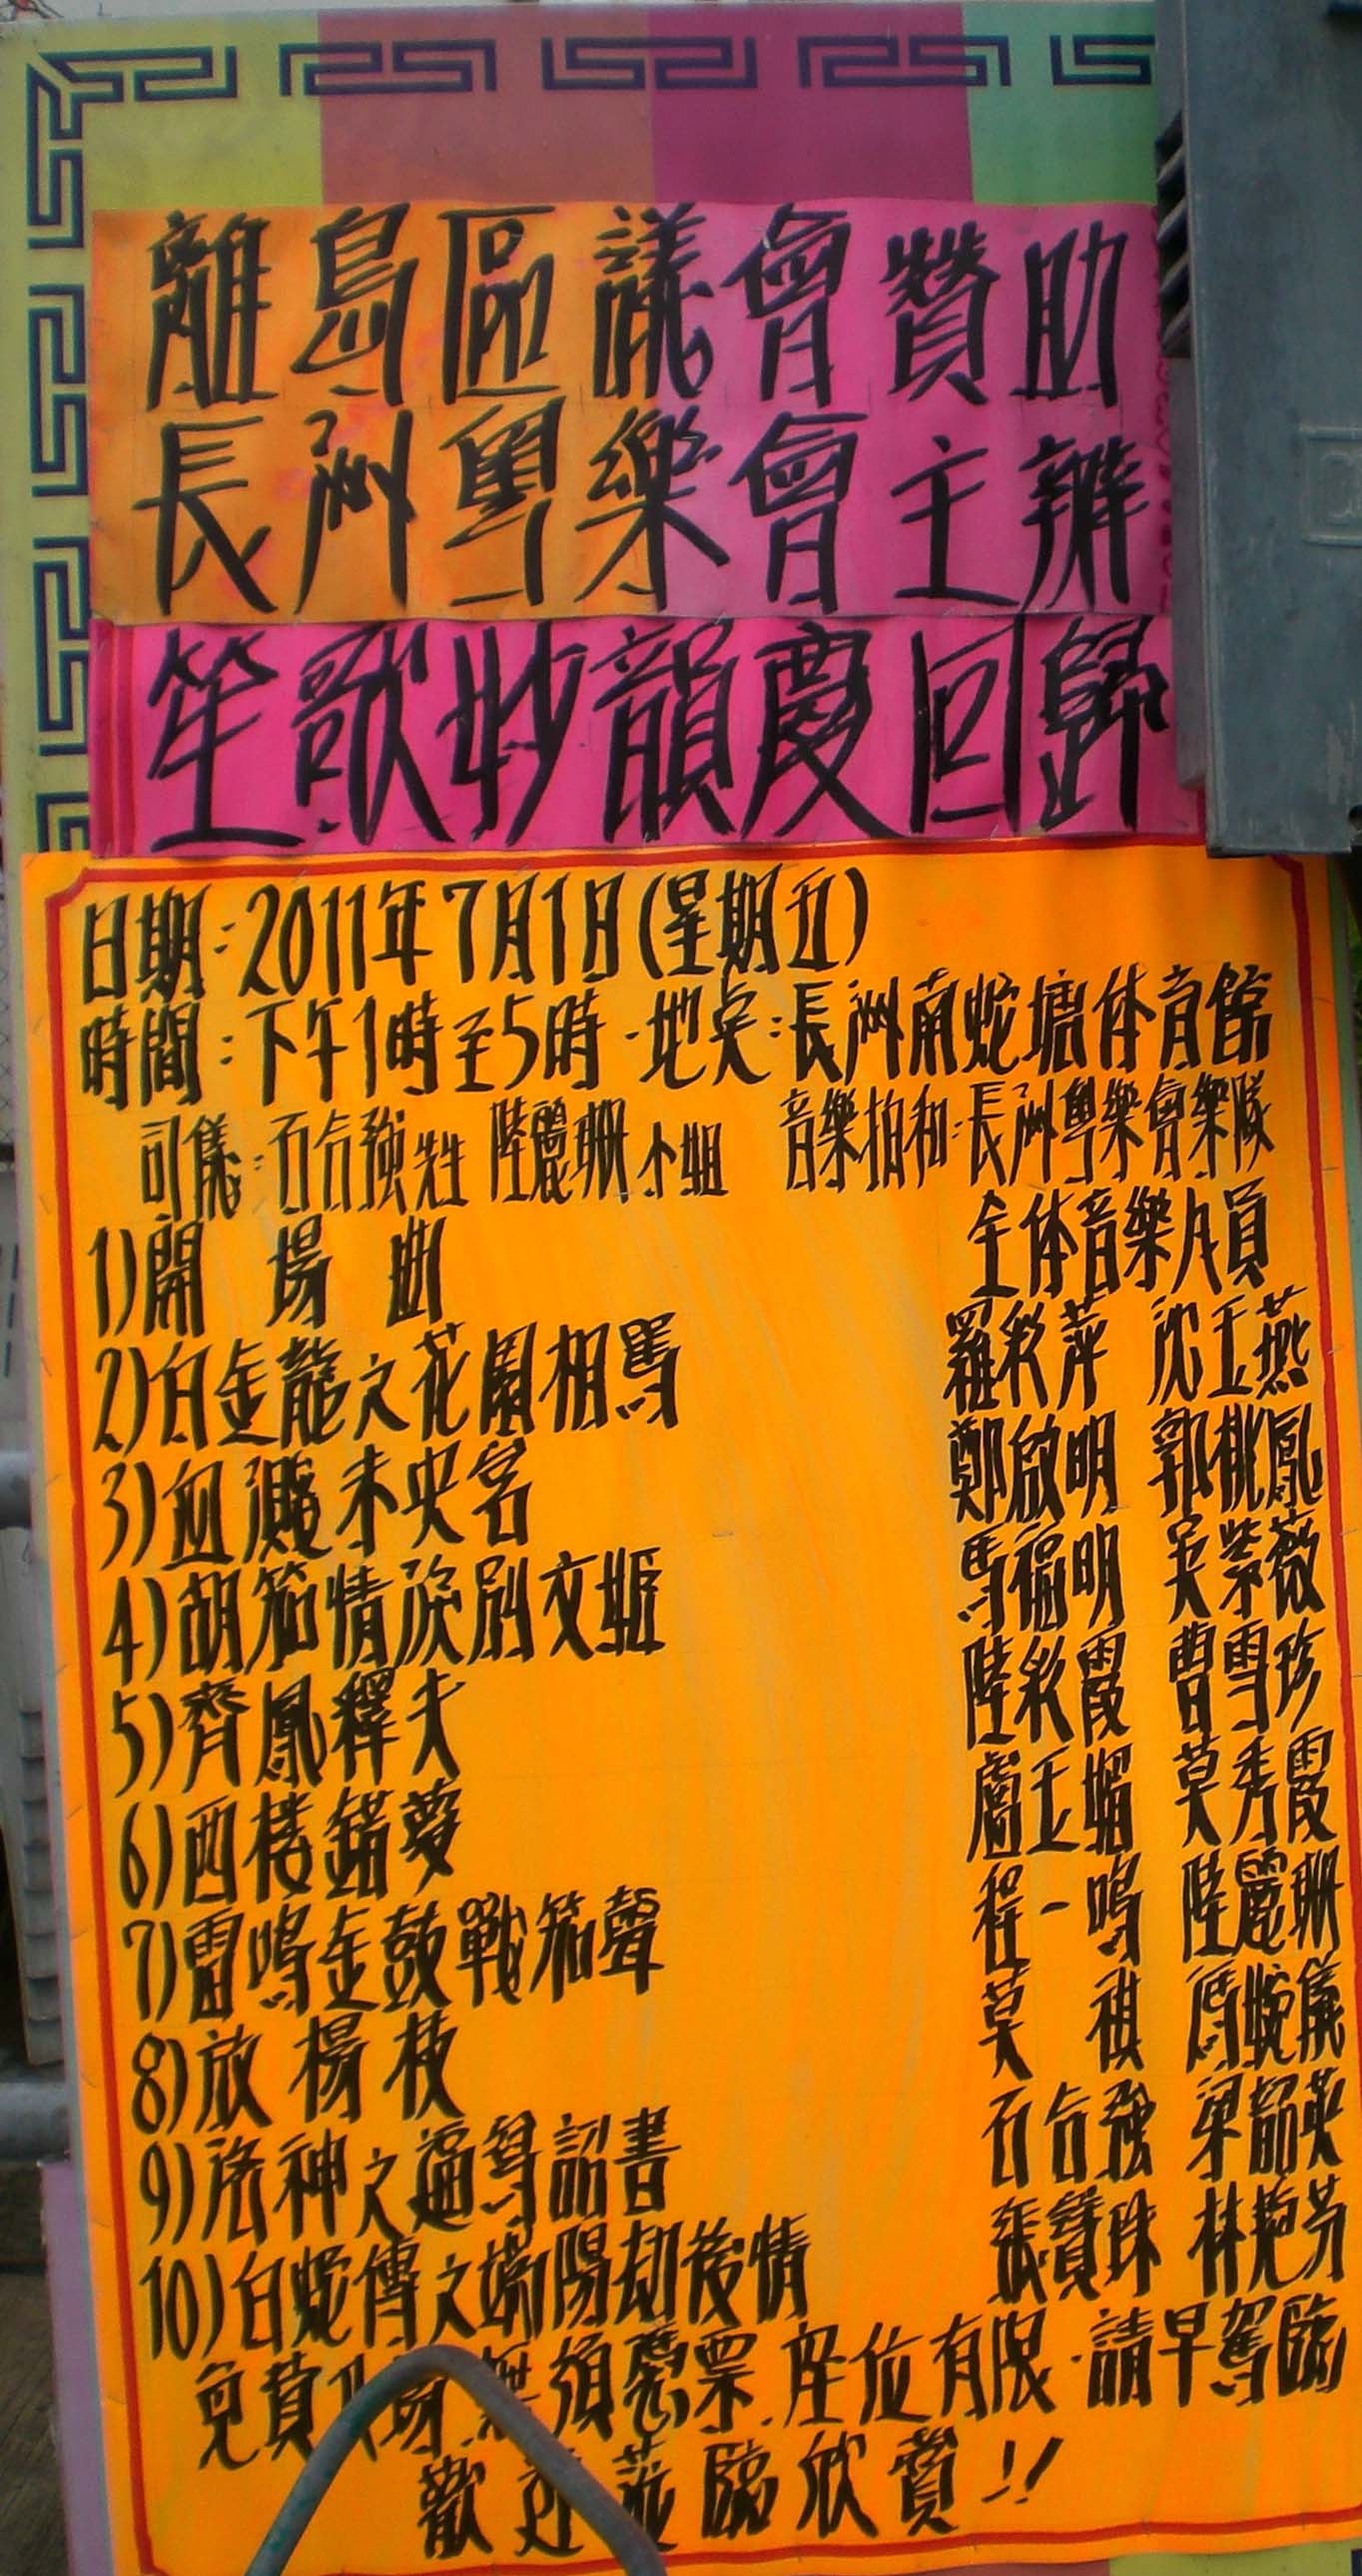 離島區議會贊助
長洲粵樂會主辦
笙歌妙韻慶回歸
日期:2011年7月1日(星期五)
時間:下午1時至5時·地点:長洲南蛇塘体育館
司儀:石合強先生 陸麗珊小姐 音樂拍和:長洲粵樂會樂隊
1)開場曲 全体音樂人員
2)白金龍之花園相馬 羅彩萍 沈玉燕
3)血濺未央宮 鄭啟明 郭桃鳳
4)胡笳情深蔡文姬 馬福明 吳紫薇
5)齊鳳釋夫 陸彩霞 曹雪珍
6)西楼錯夢 盧玉媚 莫秀霞
7)雷鳴金鼓戰笳聲 程一鳴 陸麗珊
8)放楊枝 莫祺 馮婉儀
9)洛神之逼寫詔書 石合強 梁韶英
10)白蛇傳之端陽劫後情 張寶珠 林艷芳
免費入場·無須憑票·座位有限·請早駕臨
歡迎蒞臨欣賞!!